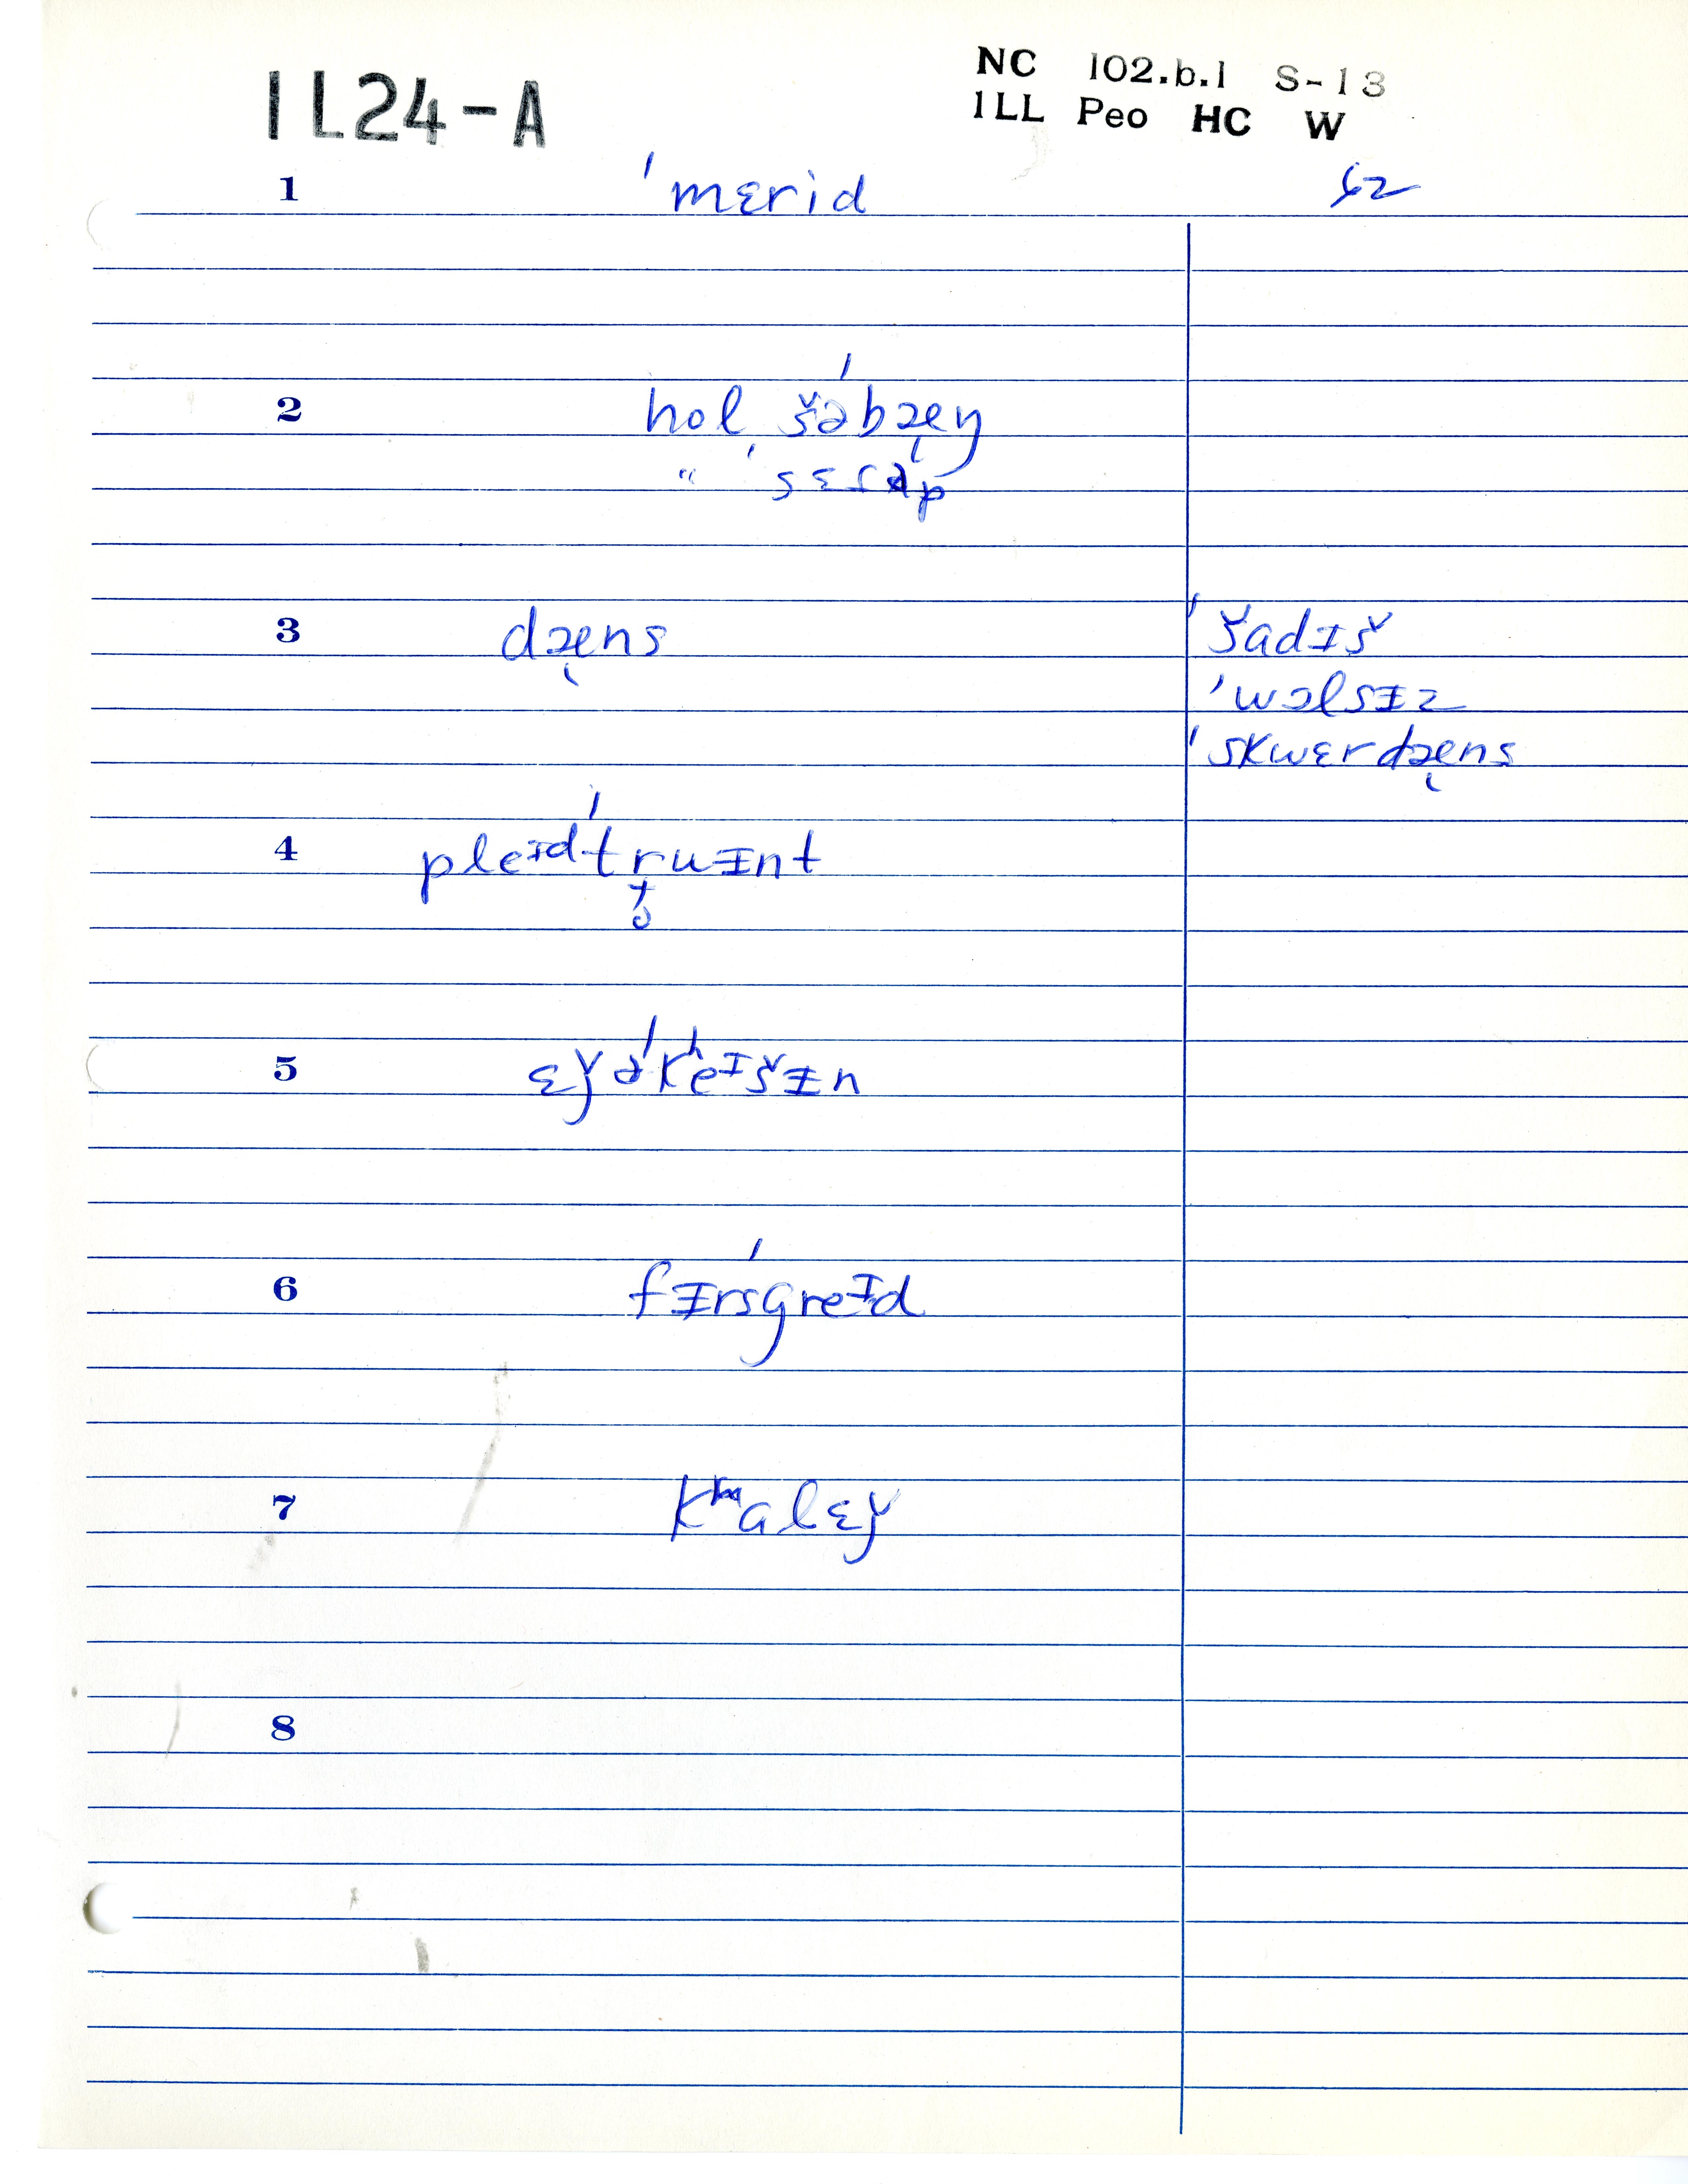 IL24-A
NC 102.b.1 S-13
ILL Peo HC W
1 ˈmɛrid 62
2 hol ˈšəbæŋ
" ˈsɛrəp
3 dæ̨ns ˈšadɪš
ˈwɔlsɪz
ˈskwɛrdæ̨ns
4 pleᶦdˈtruɪnt
5 ɛǰəˈkʰeᶦšɪn
6 fɪrsˈgreᶦd
7 kʰalɛǰ
8